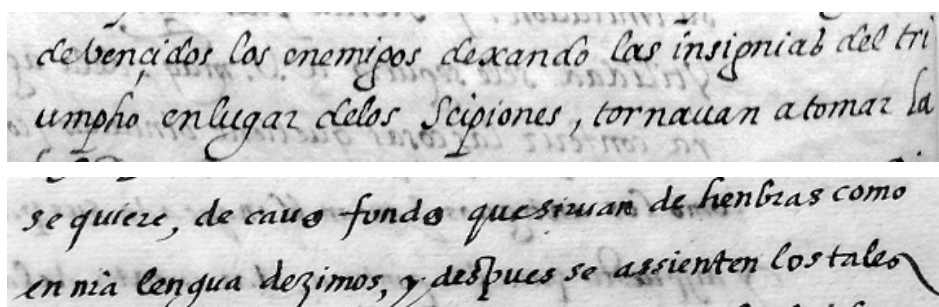 de vençidos los enemigos dexando las insignias del tri
umpho en lugar delos Scipiones, tornauan a tomar la
se quiere, de cauo fondo que siruan de henbras como
en nra lengua dezimos, y despues se assienten los tales